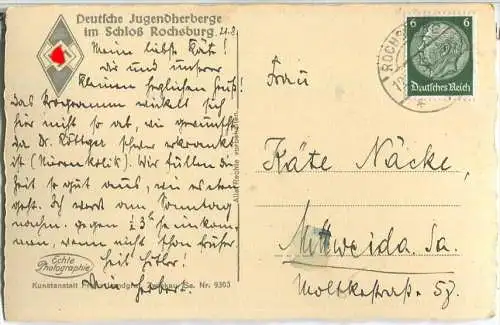 Deutsche Jugendherberge
im Schloß Rochsburg. 21.8.
Meine liebste Kät!
Dir und unserer
kleinen herzlichen Gruß!
Das Programm wickelt sich
hier nicht so ab, wie gewünscht
da Dr. Röttger schwer erkrankt
ist (Nierenkolik). Wir füllen die
Zeit so gut aus, wie es eben
geht. Ich werde am Sonntag
nachm. gegen ½3 h
wenn nicht schon früher.
Heil Hitler!
Dein Herbert.
Echte
Photographie
Kunstanstalt Zwickau Sa. Nr. 9303
Alle Rechte vorbehalten
ROCHSB
6 6
Deutsches Reich
Frau
Käte Näcke,
Mittweida. Sa.
Moltkestraße 57.